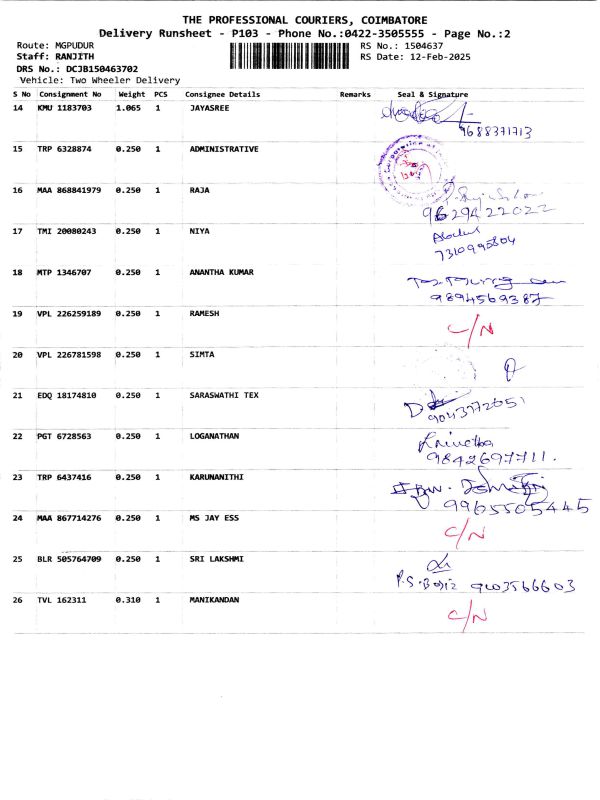 THE PROFESSIONAL COURIERS, COIMBATORE
Delivery Runsheet - P103 - Phone No.:0422-3505555 - Page No.:2
Route: MGPUDUR RS No.: 1504637
Staff: RANJITH RS Date: 12-Feb-2025
DRS No.: DCJB150463702
Vehicle: Two Wheeler Delivery
S No Consignment No Weight PCS Consignee Details Remarks Seal & Signature
14 KMU 1183703 1.065 1 JAYASREE
9688371713
15 TRP 6328874 0.250 1 ADMINISTRATIVE
16 MAA 868841979 0.250 1 RAJA
9629422022
17 TMI 20080243 0.250 1 NIYA
7310995804
18 MTP 1346707 0.250 1 ANANTHA KUMAR
9894569387
19 VPL 226259189 0.250 1 RAMESH C/N
20 VPL 226781598 0.250 1 SIMTA
21 EDQ 18174810 0.250 1 SARASWATHI TEX
22 PGT 6728563 0.250 1 LOGANATHAN
9842697711.
23 TRP 6437416 0.250 1 KARUNANITHI
9965505445
24 MAA 867714276 0.250 1 MS JAY ESS C/N
25 BLR 505764709 0.250 1 SRI LAKSHMI
26 TVL 162311 0.310 1 MANIKANDAN C/N